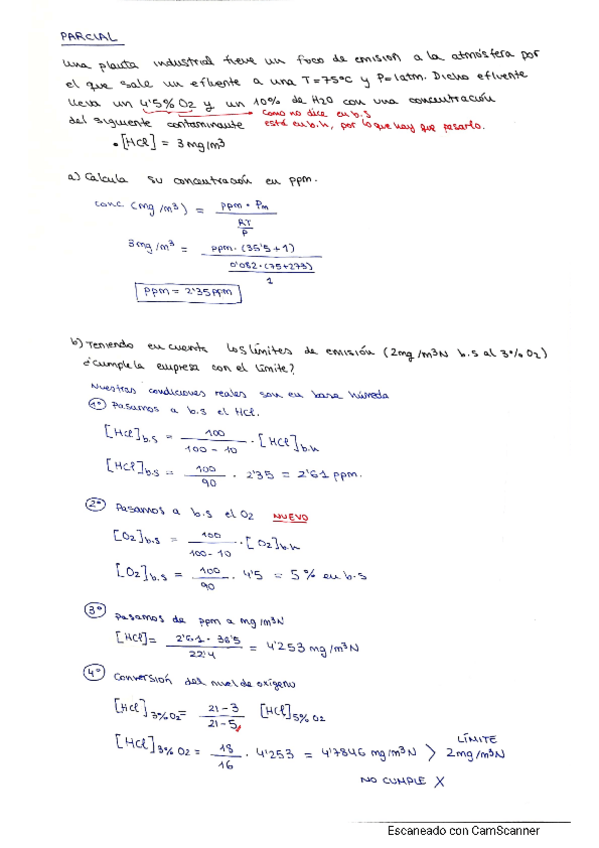 PARCIAL
Una planta industrial tiene un foco de emisión a la atmósfera por
el que sale un efluente a una T=75°C y P=1atm. Dicho efluente
lleva un 4'5% O2 y un 10% de H2O con una concentración
como no dice en b.s
del siguiente contaminante
está en b.h, por lo que hay que pasarlo.
• [HCl] = 3 mg/m3
a) Calcula su concentración en ppm.
conc (mg/m3) = ppm · Pm / RT/P
3 mg/m3 = ppm · (35'5 + 1) / 0'082 · (75+273) / 1
ppm = 2'35 ppm
b) Teniendo en cuenta los límites de emisión (2mg/m3N b.s al 3% O2)
¿cumple la empresa con el límite?
Nuestras condiciones reales son en base húmeda
1º Pasamos a b.s el HCl.
[HCl]b.s = 100 / 100 - 10 · [HCl]b.h
[HCl]b.s = 100 / 90 · 2'35 = 2'61 ppm.
2º Pasamos a b.s el O2 NUEVO
[O2]b.s = 100 / 100-10 · [O2]b.h
[O2]b.s = 100 / 90 · 4'5 = 5% en b.s
3º Pasamos de ppm a mg/m3N
[HCl] = 2'61 · 36'5 / 22'4 = 4'253 mg/m3N
4º Conversión del nivel de oxígeno
[HCl]3%O2 = 21-3 / 21-5 [HCl]5%O2
[HCl]3%O2 = 18 / 16 · 4'253 = 4'7846 mg/m3N > LÍMITE 2mg/m3N
NO CUMPLE X
Escaneado con CamScanner